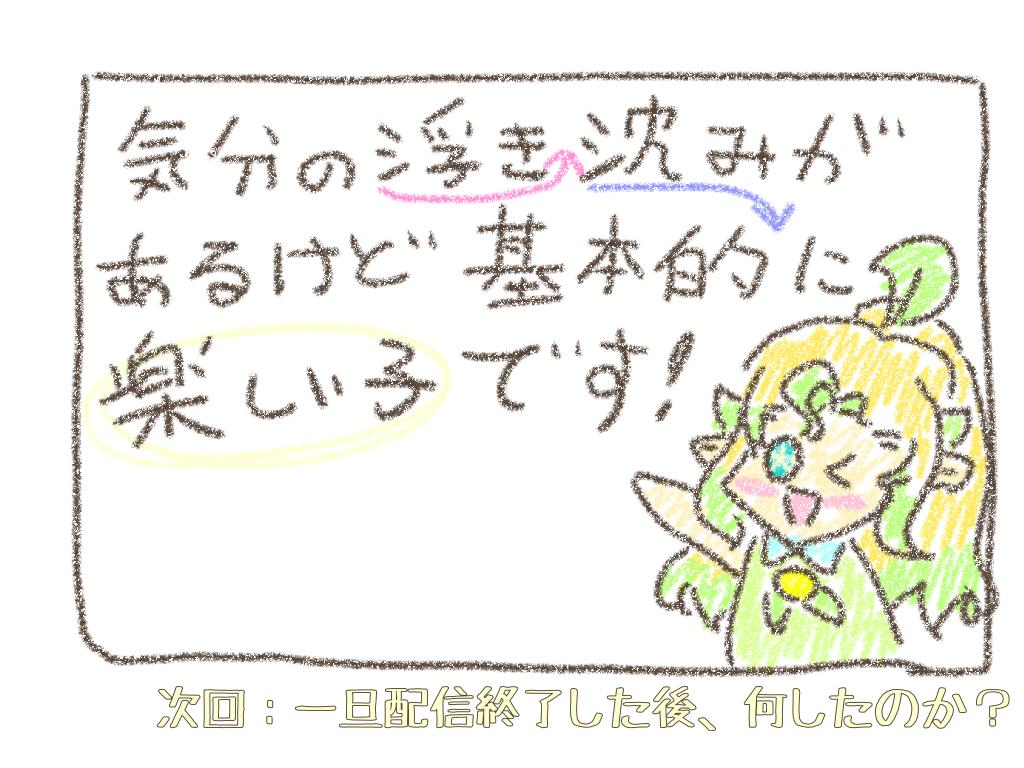 気分の浮き沈みが
あるけど基本的に
楽しい子です!
次回：一旦配信終了した後、何したのか？